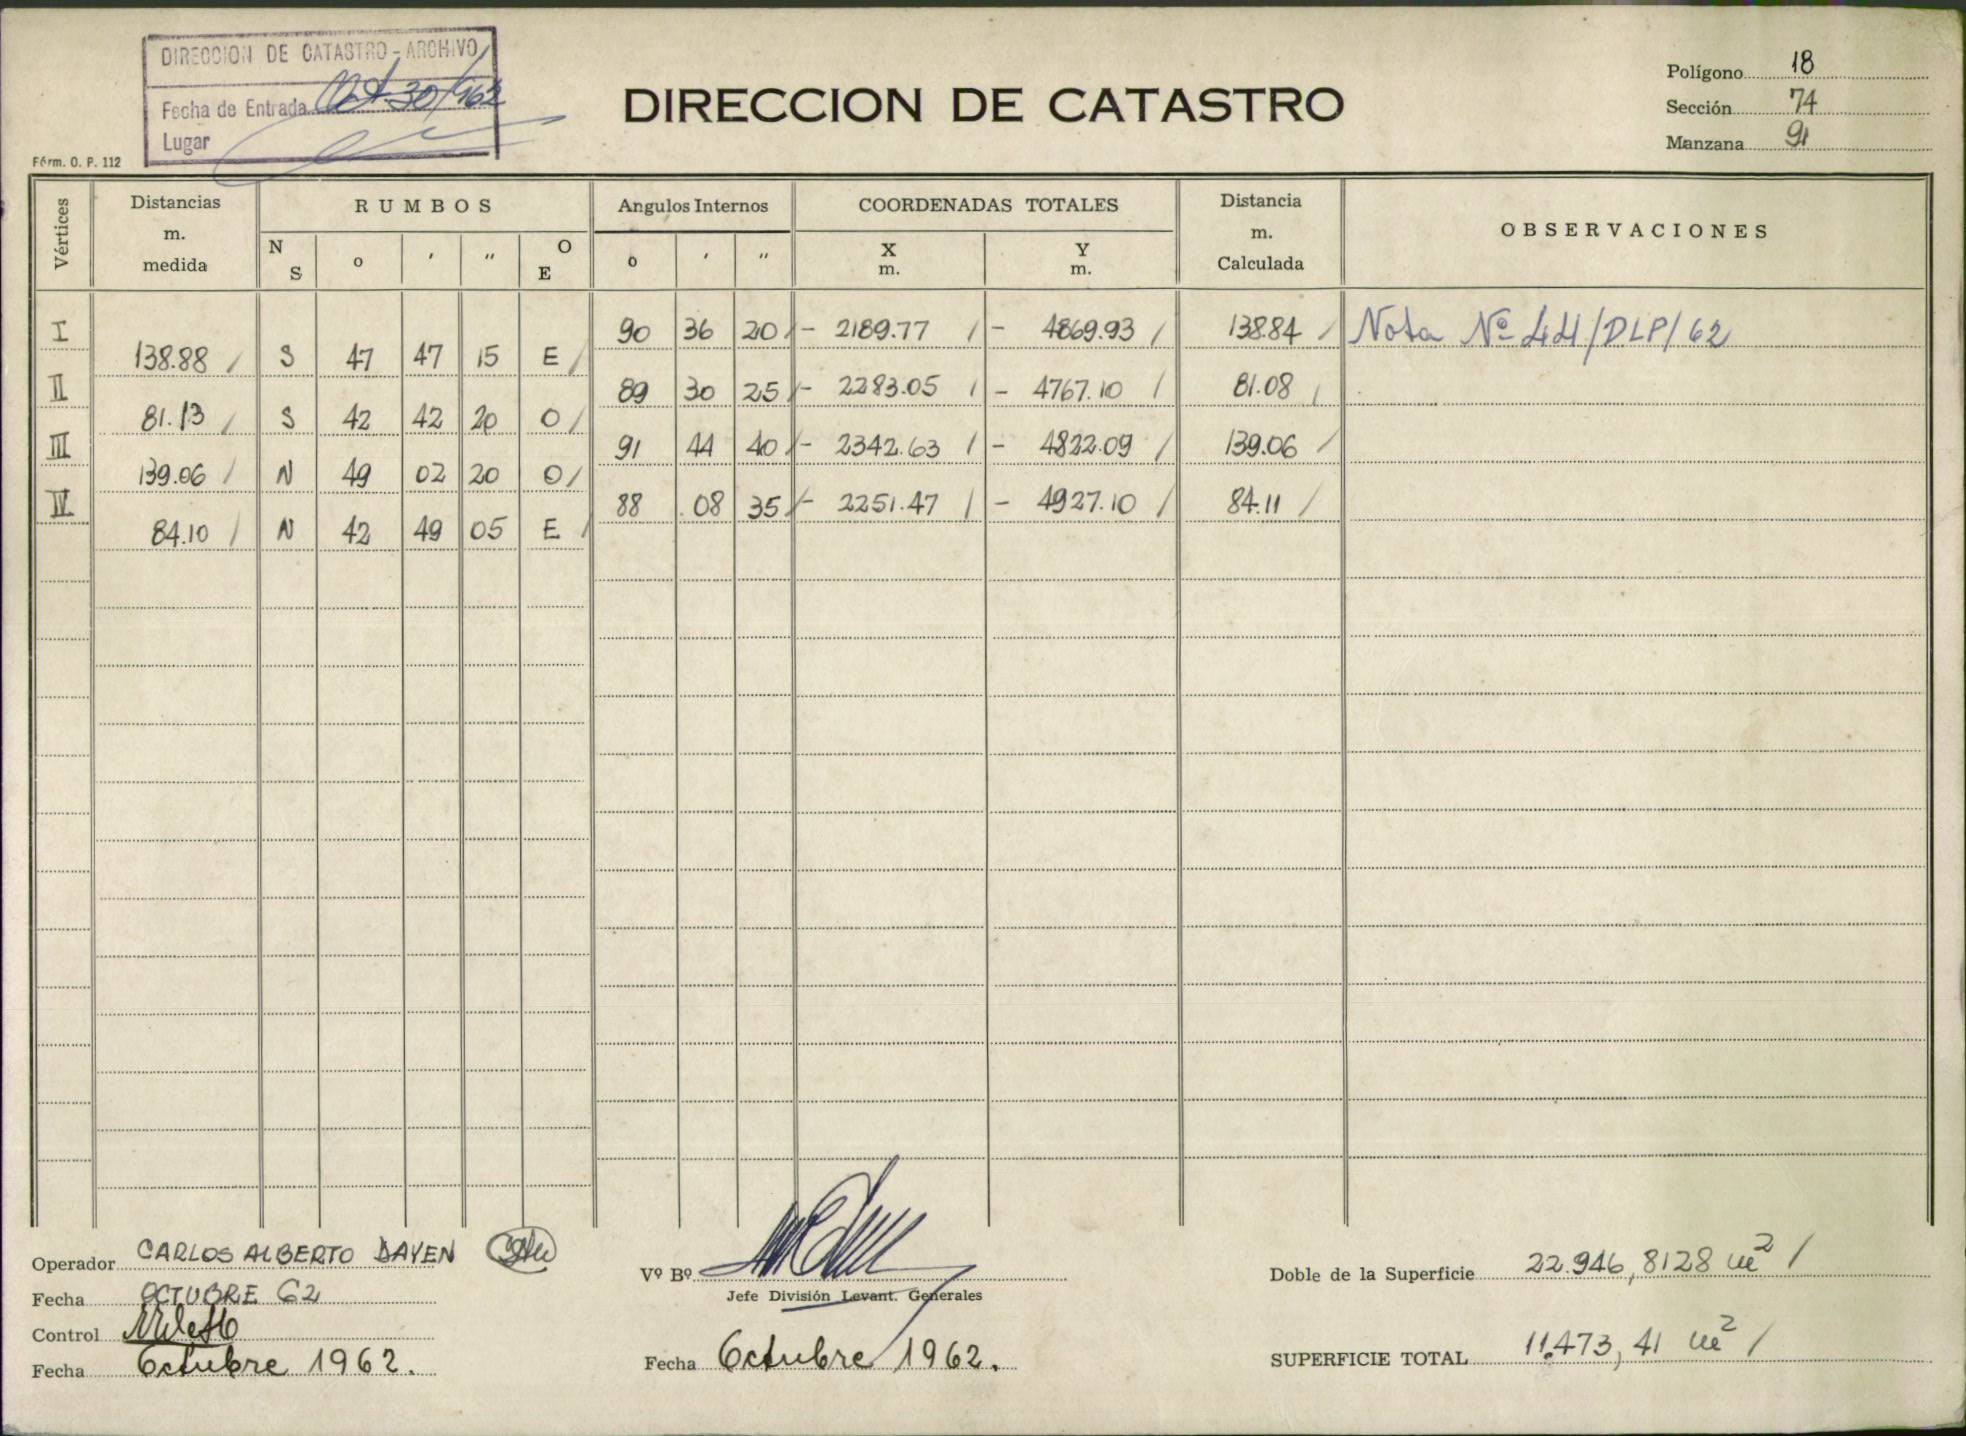 DIRECCION DE CATASTRO - ARCHIVO
Fecha de Entrada Oct 30/962
Lugar
Fórm. O. P. 112
DIRECCION DE CATASTRO
Polígono 18
Sección 74
Manzana 91
Vértices
Distancias m. medida
RUMBOS
N S
o ' "
O E
Angulos Internos
o ' "
COORDENADAS TOTALES
X m.
Y m.
Distancia m. Calculada
OBSERVACIONES
I 90 36 20 / - 2189.77 / - 4869.93 / 138.84 / Nota Nº 44/DLP/62
138.88 / S 47 47 15 E /
II 89 30 25 / - 2283.05 / - 4767.10 / 81.08 /
81.13 / S 42 42 20 O /
III 91 44 40 / - 2342.63 / - 4822.09 / 139.06 /
139.06 / N 49 02 20 O /
IV 88 08 35 / - 2251.47 / - 4927.10 / 84.11 /
84.10 / N 42 49 05 E /
Operador CARLOS ALBERTO DAYEN
Fecha OCTUBRE 62
Control
Fecha Octubre 1962.
Vº Bº
Jefe División Levant. Generales
Fecha Octubre 1962.
Doble de la Superficie 22.946,8128 m² /
SUPERFICIE TOTAL 11.473,41 m² /